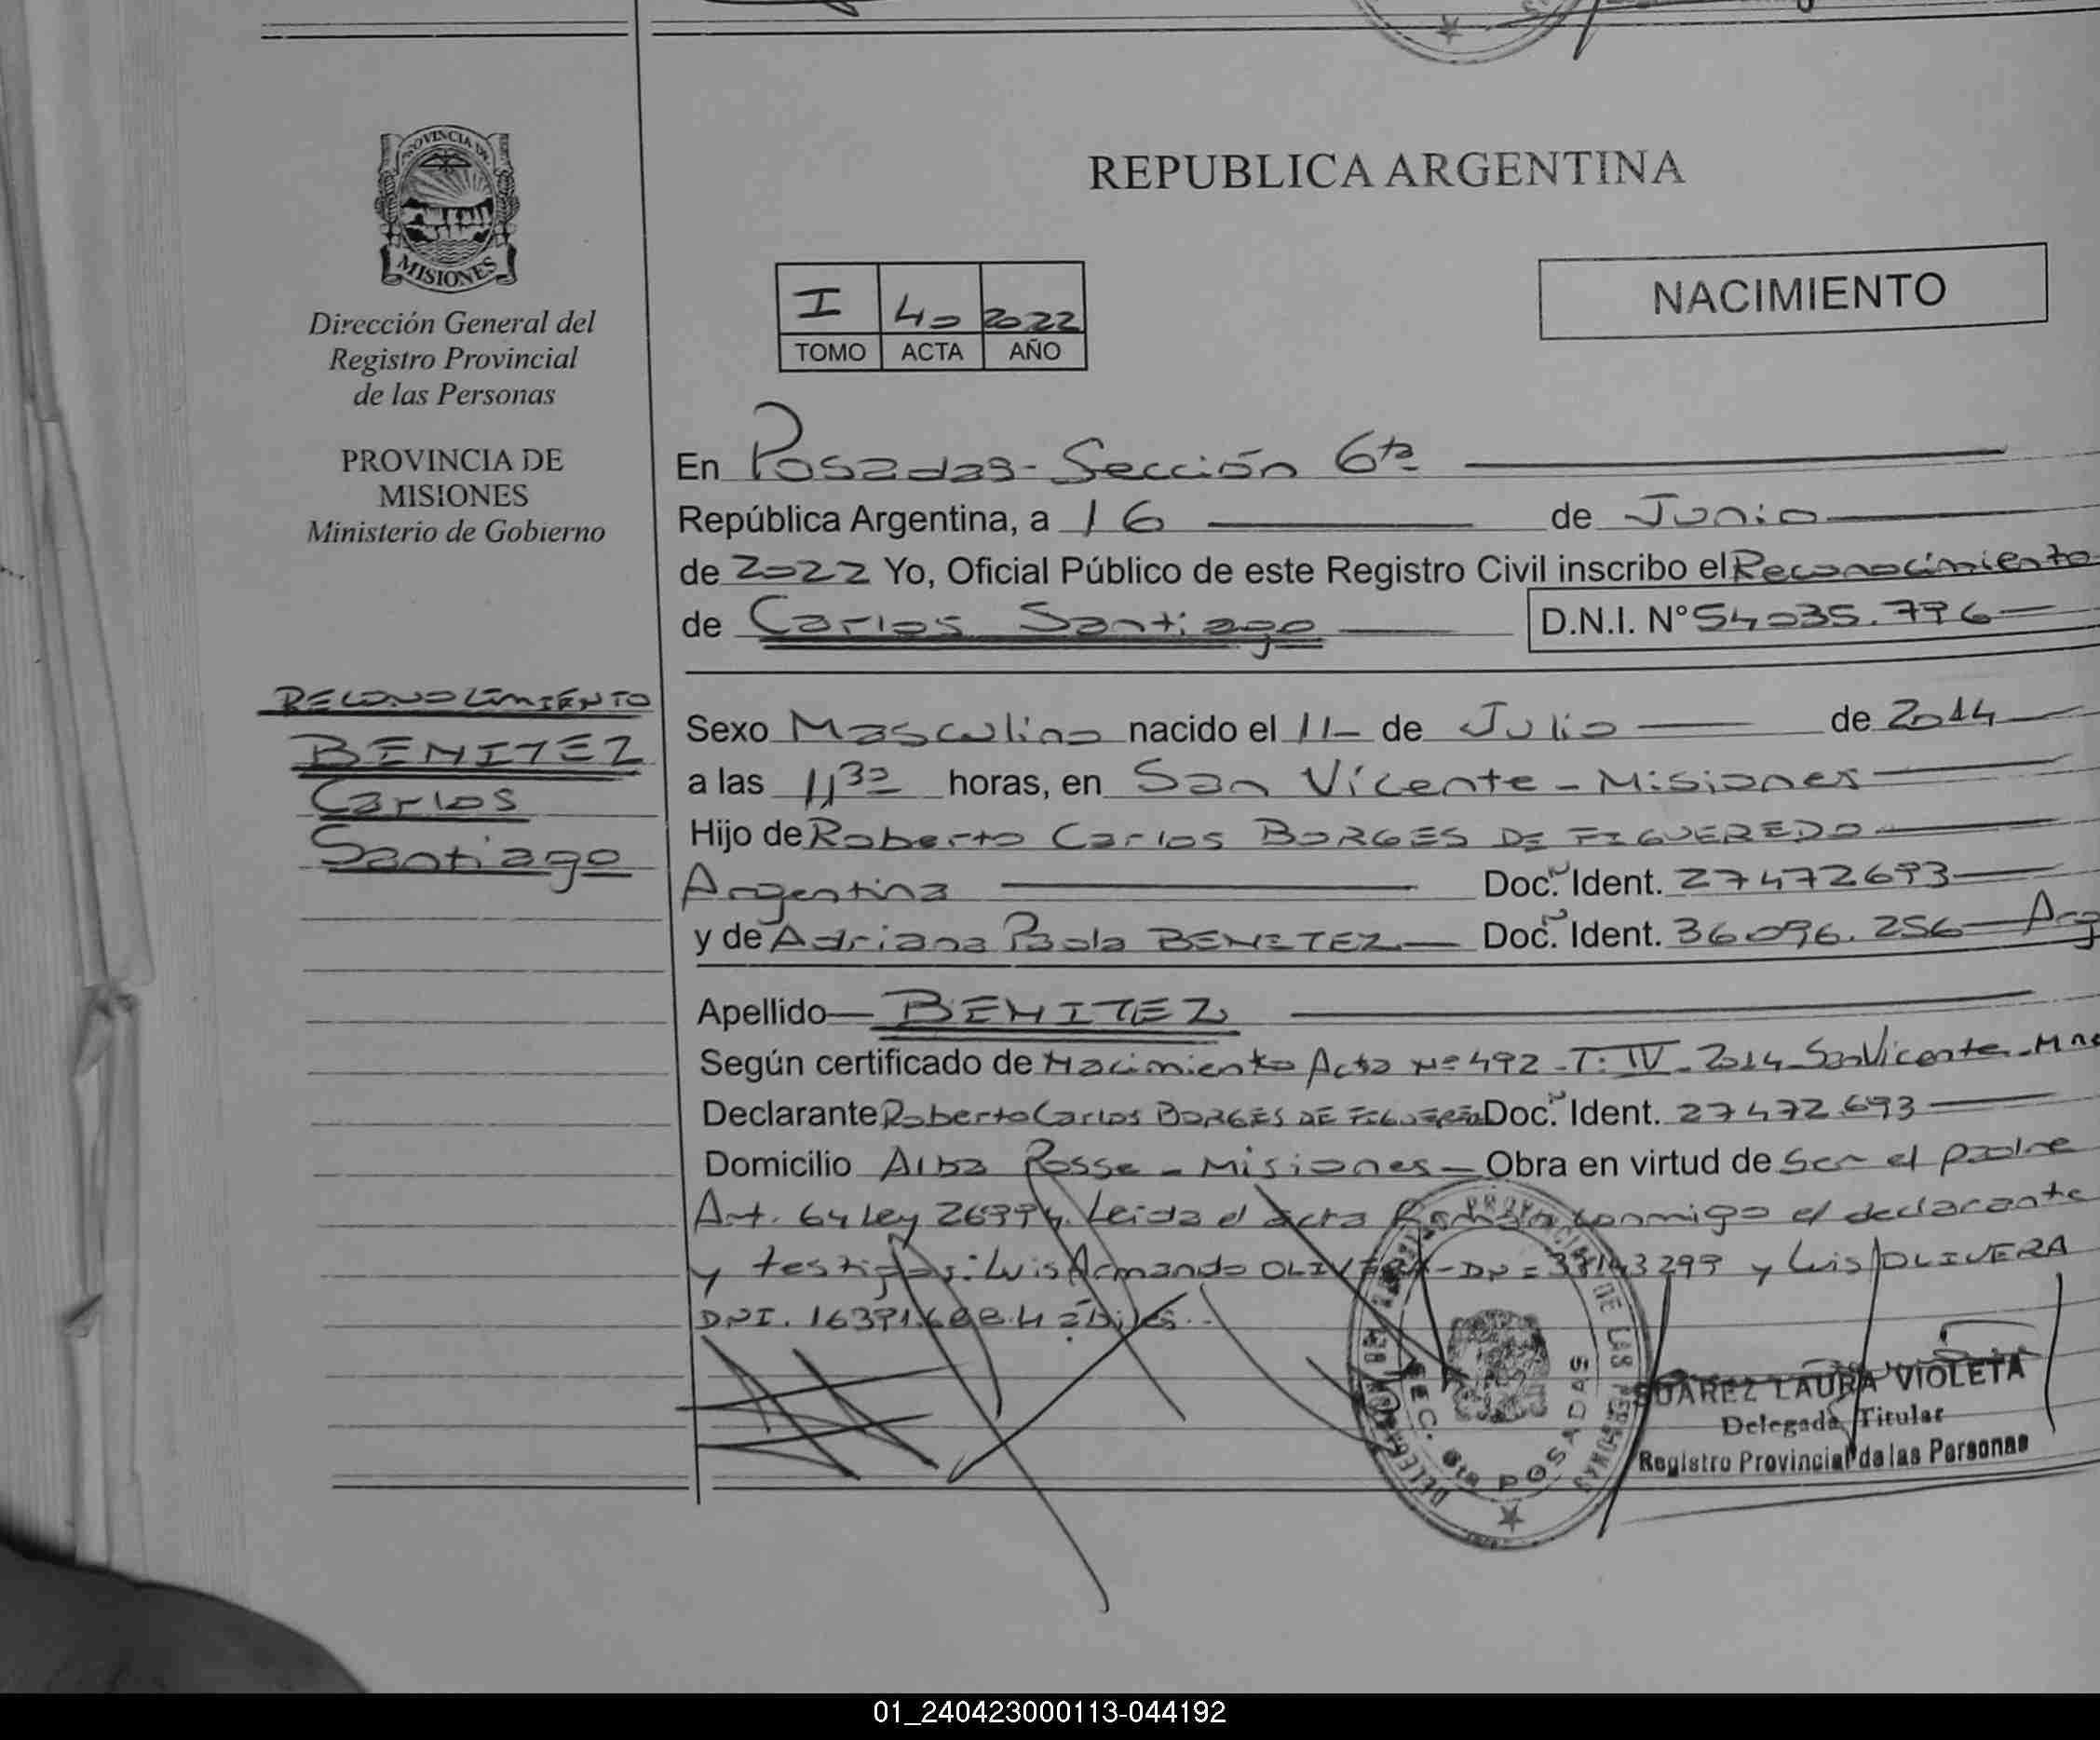 PROVINCIA DE
MISIONES
Dirección General del
Registro Provincial
de las Personas
PROVINCIA DE
MISIONES
Ministerio de Gobierno
RECONOCIMIENTO
BENITEZ
Carlos
Santiago
REPUBLICA ARGENTINA
I 40 2022
TOMO ACTA AÑO
NACIMIENTO
En Posadas - Sección 6ta
República Argentina, a 16 de Junio
de 2022 Yo, Oficial Público de este Registro Civil inscribo el Reconocimiento
de Carlos Santiago D.N.I. N° 54035.796
Sexo Masculino nacido el 11 de Julio de 2014
a las 11,30 horas, en San Vicente - Misiones
Hijo de Roberto Carlos BORGES DE FIGUEREDO
Argentina Doc. Ident. 27472693
y de Adriana Paola BENITEZ Doc. Ident. 36096.256 Arg
Apellido BENITEZ
Según certificado de Nacimiento Acta Nº 492 - T: IV - 2014 San Vicente - Mnes
Declarante Roberto Carlos BORGES DE Doc. Ident. 27472693
Domicilio Alba Posse - Misiones - Obra en virtud de Ser el padre
Art. 64 Ley 26994. Leida el acta conmigo el declarante
y testigos: Luis Armando OLIVERA - y Luis OLIVERA
DNI. Hábiles.
PROVINCIAL DE LAS PERSONAS
SEC. 6ta POSADAS
SUAREZ LAURA VIOLETA
Delegada Titular
Registro Provincial de las Personas
01_240423000113-044192